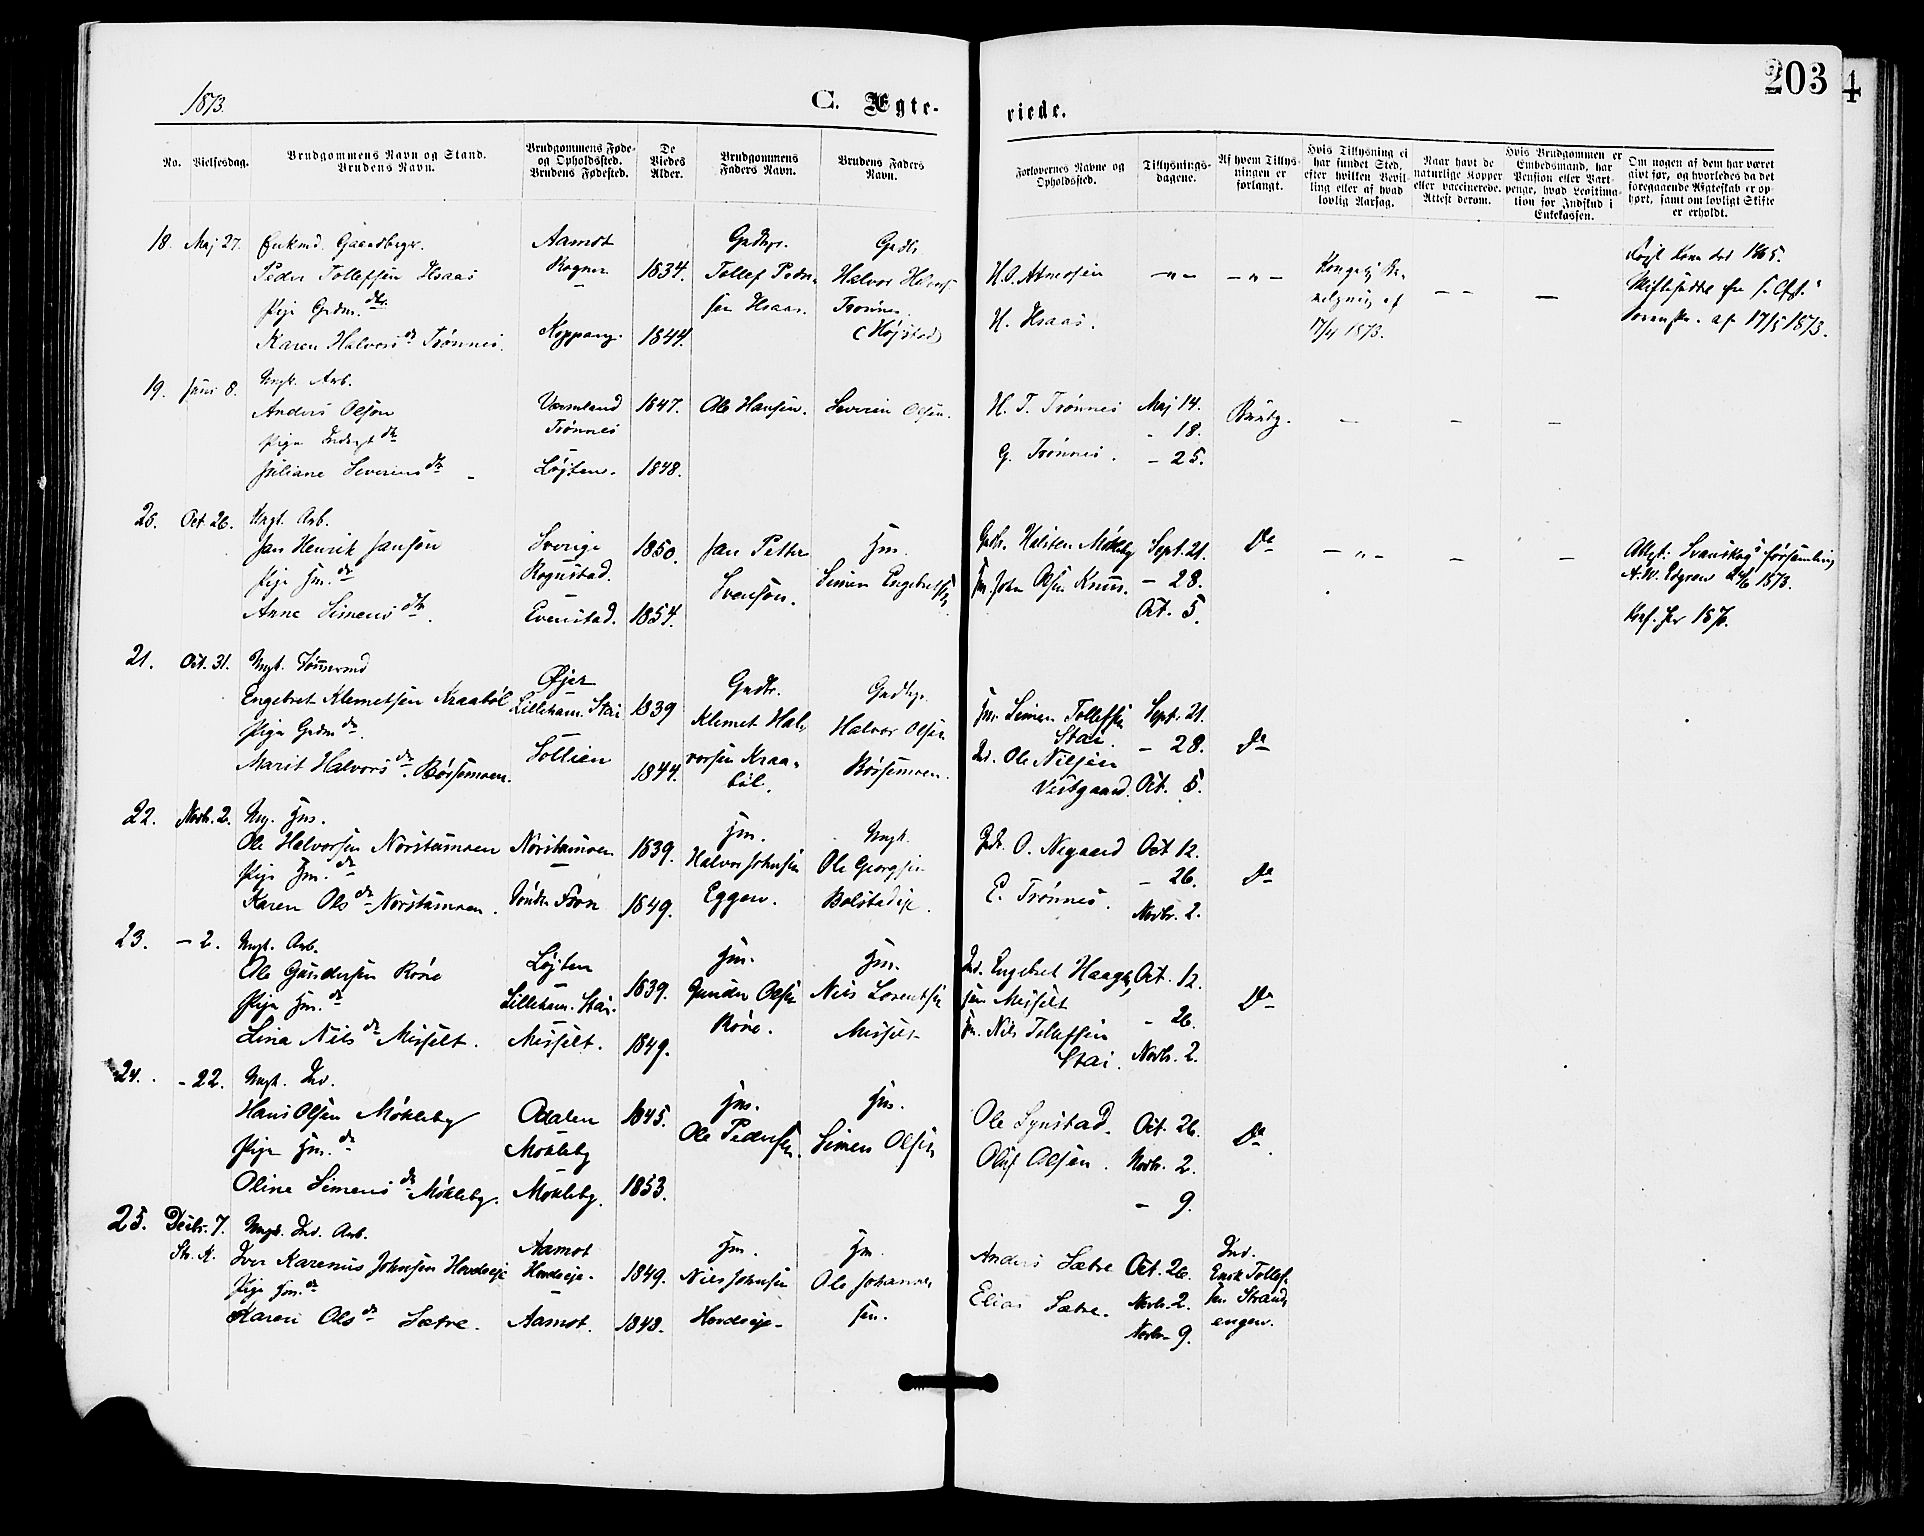 1873.
C. Ægte-
viede.
203
4
No.
Vielsesdag.
Brudgommens Navn og Stand.
Brudens Navn.
Brudgommens Føde-
og Opholdssted.
Brudens Fødested.
De
Viedes
Alder.
Brudgommens
Faders Navn.
Brudens Faders
Navn.
Forlovernes Navne og
Opholdssted.
Tillysnings-
dagene.
Af hvem Tillys-
ningen er
forlangt.
Hvis Tillysning ei
har fundet Sted,
efter hvilken Bevil-
ling eller af hvad
lovlig Aarsag.
Naar havt de
naturlige Kopper
eller vaccinerede.
Attest derom.
Hvis Brudgommen er
Embedsmand, har
Pension eller Vart-
penge, hvad Legitima-
tion for Indskud i
Enkekassen.
Om nogen af dem har været
givt før, og hvorledes da det
foregaaende Ægteskab er op-
hørt, samt om lovligt Skifte
er erholdt.
18. Maj 27. Enkmd. Gaardbrger.
Peder Tollefsen Haas
Pige Grdm. dtr.
Karen Halvorsdr Trønnes.
Aamot
Koppang.
1834.
1844.
Tollef Peder-
sen
Halvor
Trønnes
(Højstad)
H. O. Arnesen
-„-
-„-
Kongelig Be-
af
17/4 1873.
- -
-
1865.
af 17/5 1873.
19. Juni 8. Ungk. Arb.
Anders Olsen
Pige
Juliane Severinsdtr
Værmland
Trønnes
Løjten.
1847.
1848.
Ole Hansen.
Severin Olsen.
H. T. Trønnes
G. Trønnes.
Maj 14.
- 18.
- 25.
- - -
20. Oct. 26. Ungk. Arb.
Jan Henrik Jansen
Pige Hm. dr
Anne Simensdtr.
Sverige
Rognstad.
Evenstad.
1850.
1854.
Jan Petter
Svensøn.
Hm.
Simen Engebretsen
Halsten Møkleby
John Olsen
Sept. 21.
- 28.
Oct. 5.
Do
-„- - -
Attest: Svanskog's församling
A. W. Edgren 1873.
Konf. her
21. Oct. 31. Ungk. Tømmermd
Engebret Klemetsen Kraabøl
Pige Grdm dr.
Marit Halvorsdr. Børsemoen.
Øjer
Lilleham. Stai
Sollien
1839
1844.
Gadbr.
Klemet Hal-
vorsen Kraa-
bøl.
Halvor Olsen
Børsemoen.
Hm. Simen Tollefsen
Stai.
Ole Nilsen
Vestgaard.
Sept. 21.
- 28.
Oct. 5.
Do
22. Novbr. 2. Ung. Hm.
Ole Halvorsen Norstumoen
Pige Hm. dr
Karen Olsdr Norstumoen.
Norstumoen
1839.
1849.
Hm.
Halvor Johnsen
Eggen.
Ungk.
Ole Georgsen
Bolstadeje.
O. Negaard
E. Trønnes.
Oct 12.
- 26.
Novbr. 2.
Do
23. - 2. Ungk. Arb.
Ole Gundersen Rone
Pige Hm. dr
Lina Nilsdr Messelt.
Løjten
Lilleham. Stai.
Messelt.
1839.
1849.
Hm.
Gunder Olsen
Rone.
Hm.
Nils Lorentsen
Messelt
Engebret Haagen-
sen Messelt
Hm. Nils Tollefsen
Stai.
Oct. 12.
- 26.
Novbr. 2.
Do
24. - 22. Ungk. Ind.
Hans Olsen Møkleby
Pige Hm. dr
Oline Simensdr Møkleby.
Odalen
Møkleby
Møkleby.
1845.
1853.
Hm.
Ole Pedersen.
Hm.
Simen Olsen
Ole Synstad.
Oluf Olsen.
Oct. 26.
Novbr. 2.
- 9.
Do
25. Decbr. 7. Ungk. Ind. Arb.
St. K. Iver Karenus Johnsen Hovdseje
Pige Hm. dr
Karen Olsdr Sætre.
Aamot
Hovdseje.
Aamot.
1849.
1848.
Hm.
Nils Johnsen
Hovdseje.
Hm.
Ole Johanne-
sen.
Anders Sætre
Elias Sætre.
Oct. 26.
Novbr. 2.
Novbr. 9.
Ind.
Enok Tollef-
sen Strand-
engen.